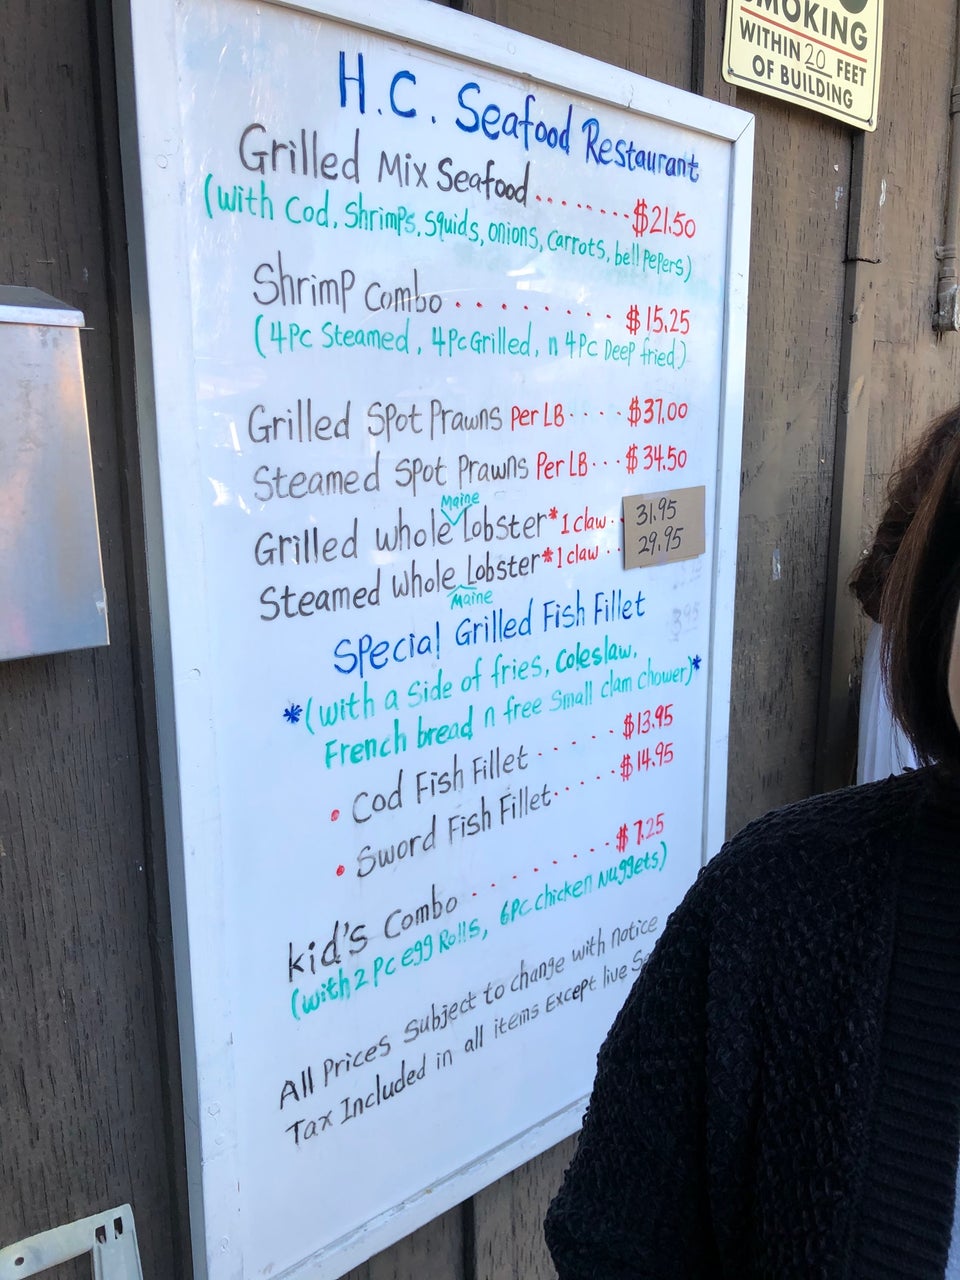 SMOKING
WITHIN 20 FEET
OF BUILDING
H.C. Seafood Restaurant
Grilled Mix Seafood........$21.50
(with Cod, Shrimps, Squids, onions, carrots, bell pepers)
Shrimp Combo........$15.25
(4pc Steamed, 4pc Grilled, n 4pc Deep fried)
Grilled Spot Prawns Per LB....$37.00
Steamed Spot Prawns Per LB...$34.50
Maine
Grilled whole Lobster*1 claw. 31.95
Steamed whole Lobster*1 claw.. 29.95
Maine
Special Grilled Fish Fillet
*(with a side of fries, Coleslaw,
French bread n free small clam chower)*
• Cod Fish Fillet.....$13.95
• Sword Fish Fillet.....$14.95
kid's Combo........$7.25
(with 2 pc egg Rolls, 6pc chicken Nuggets)
All Prices Subject to change with notice
Tax Included in all items Except live